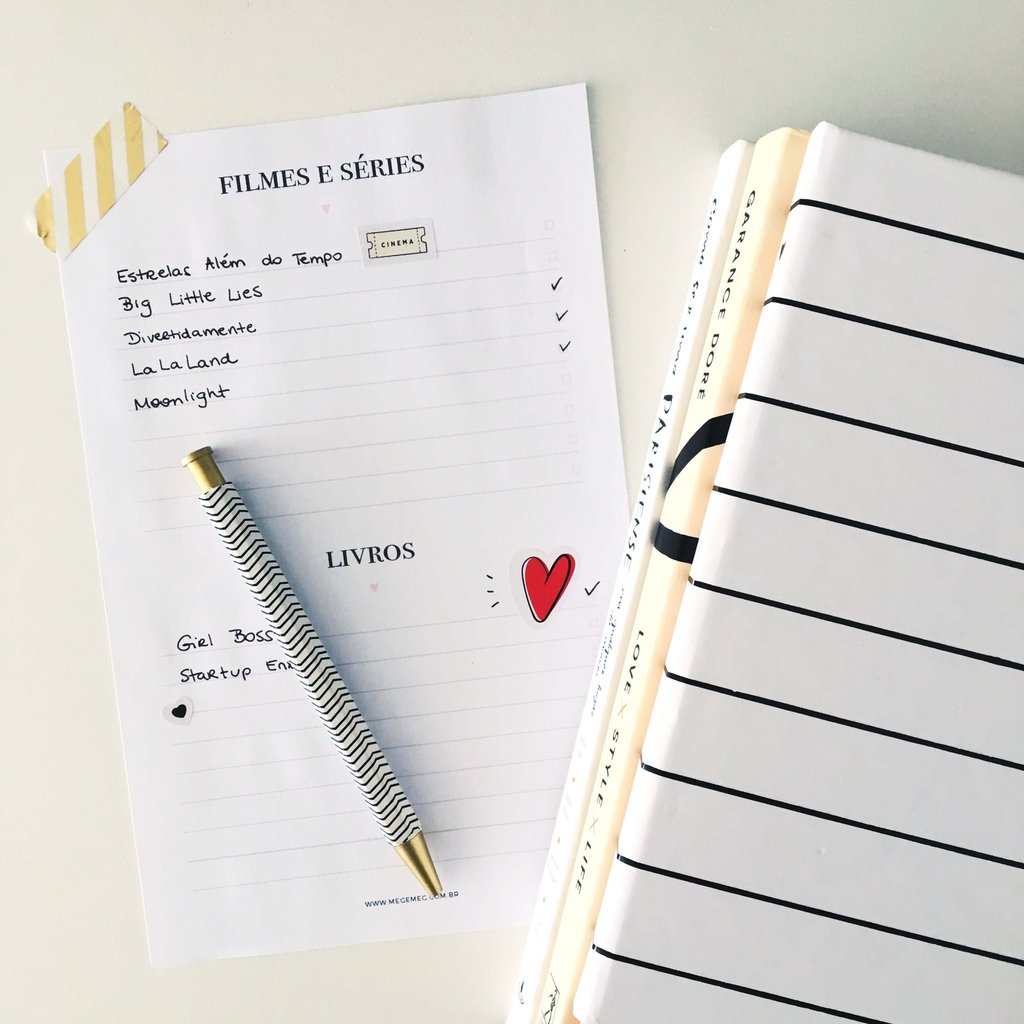 FILMES E SÉRIES
CINEMA
Estrelas Além do Tempo
Big Little Lies
Divertidamente
La La Land
Moonlight
LIVROS
Girl Boss
Startup
WWW.MEGEMEG.COM.BR
PARISIENSE
GARANCE DORÉ
LOVE × STYLE × LIFE